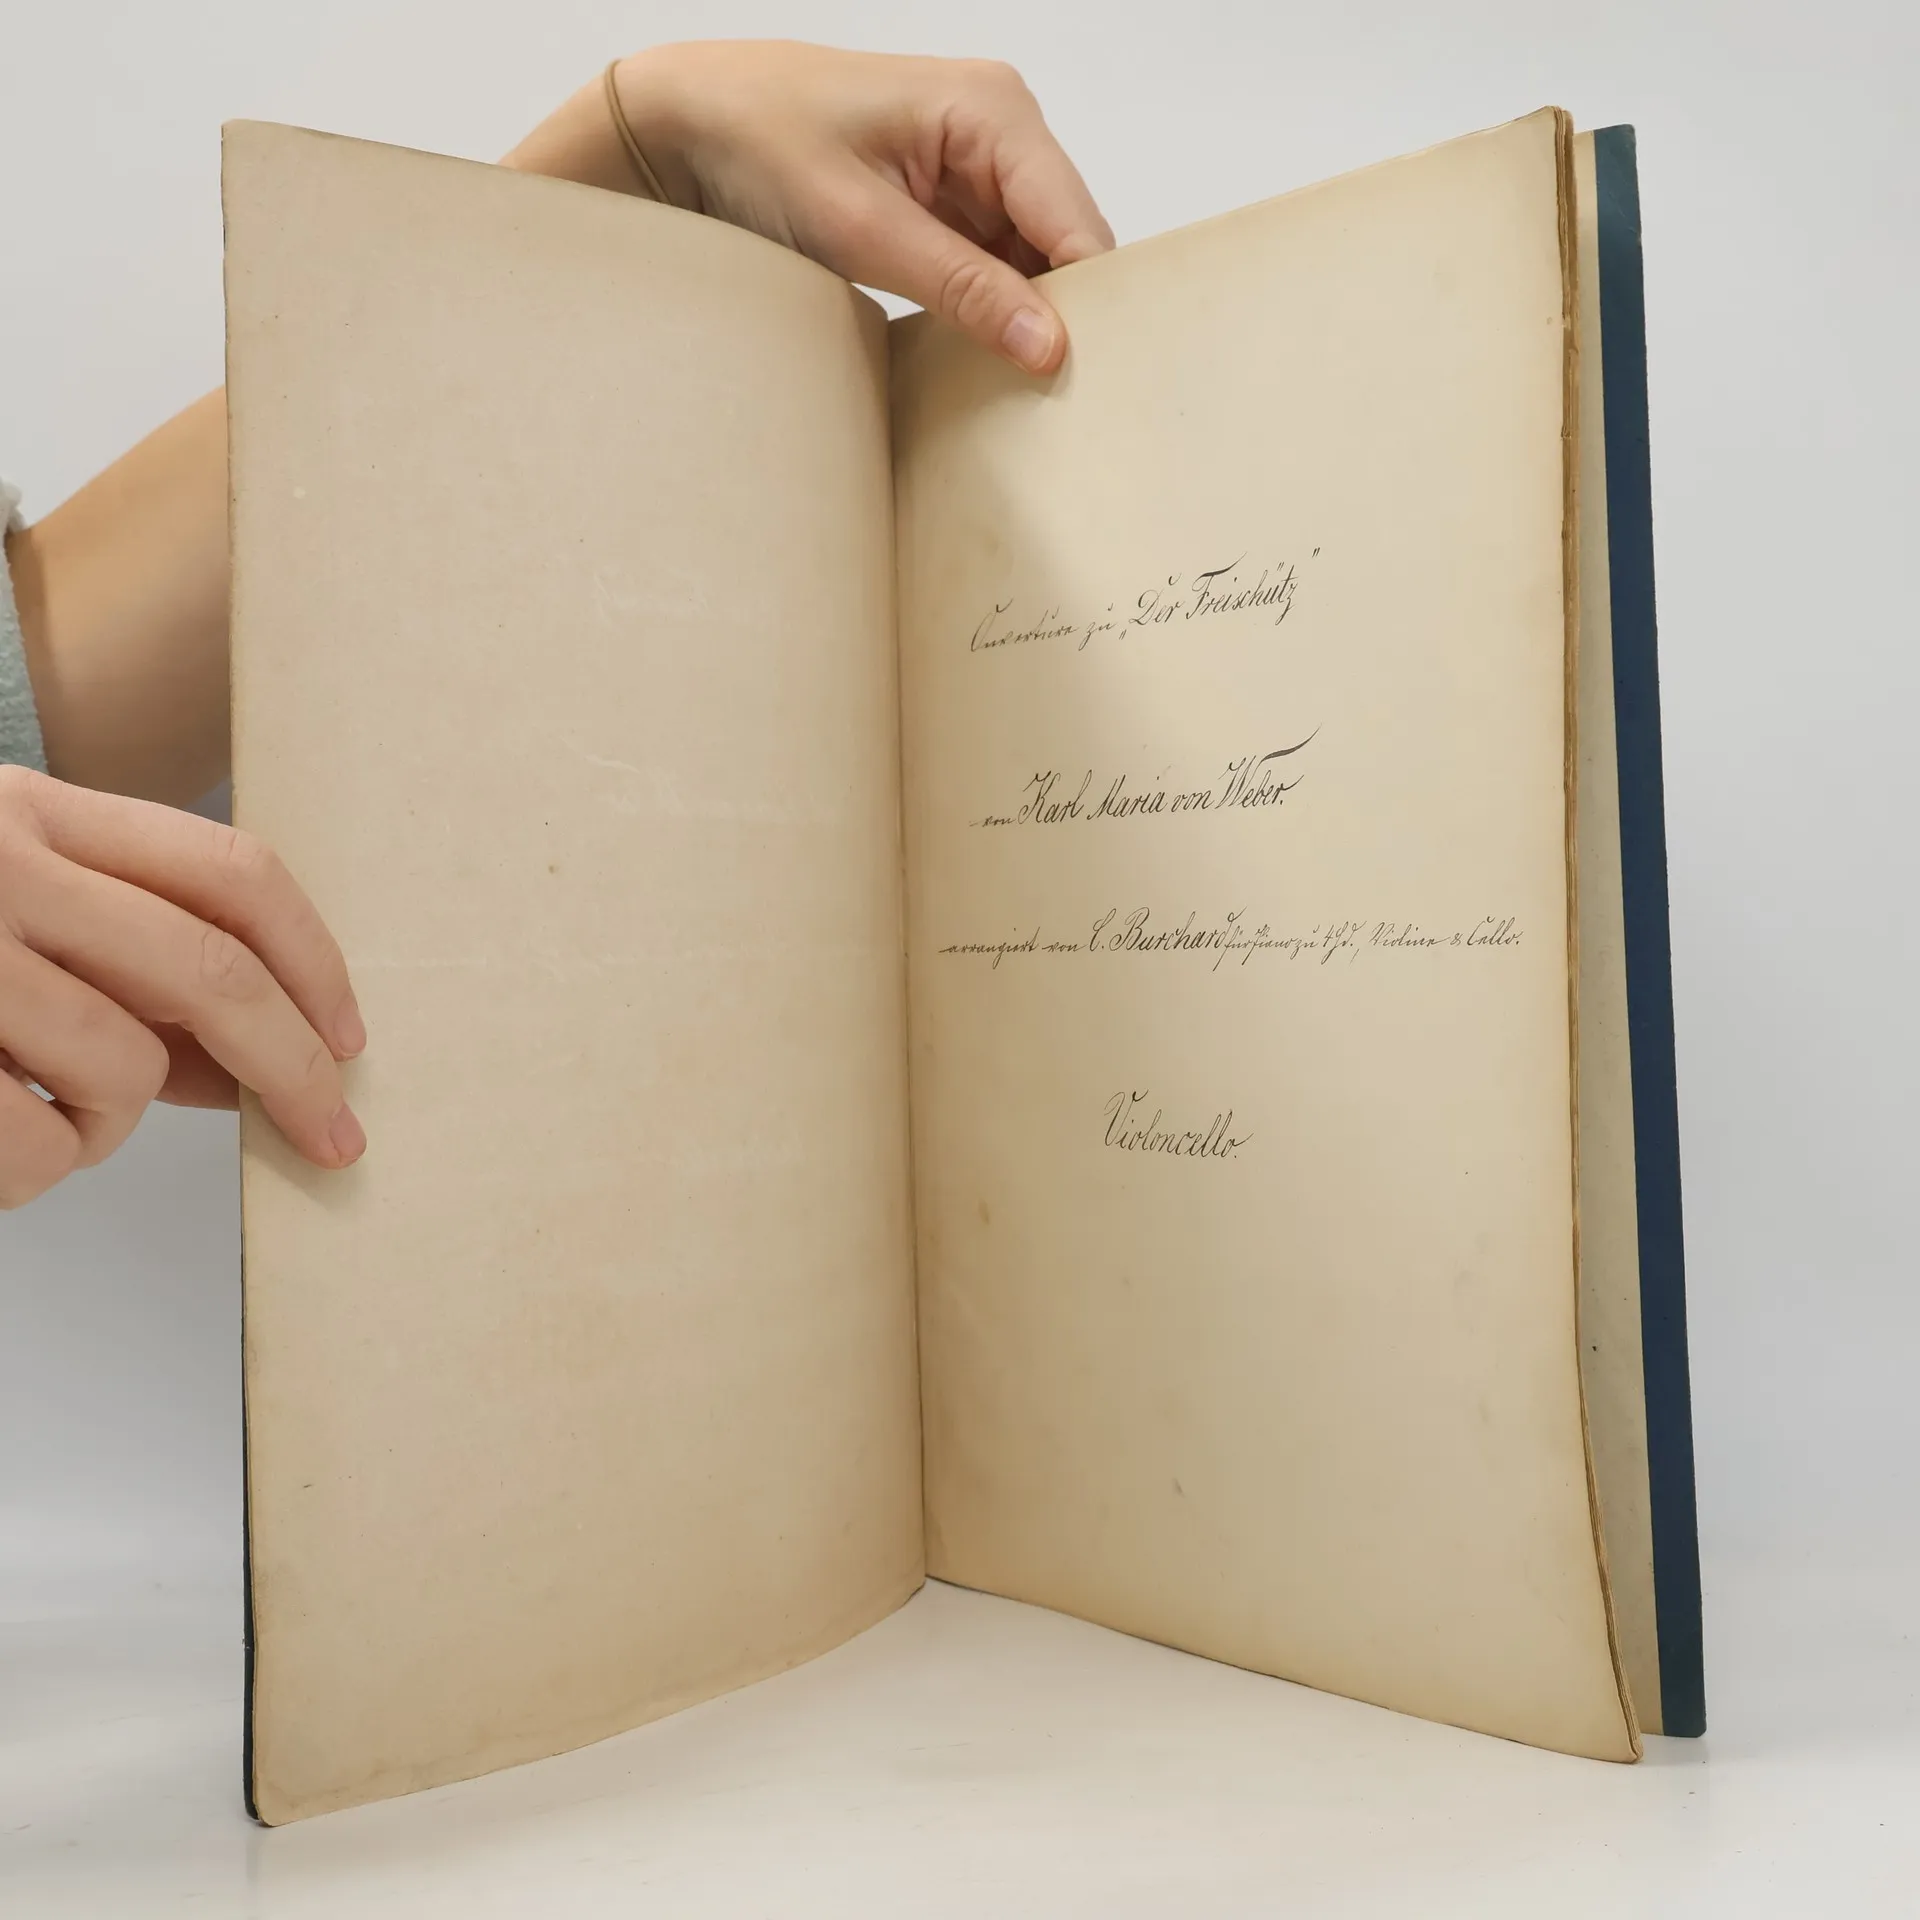 Ouverture zu „Der Freischütz"
von Karl Maria von Weber.
arrangiert von C. Burchard für Piano zu 4 Hd., Violine & Cello.
Violoncello.